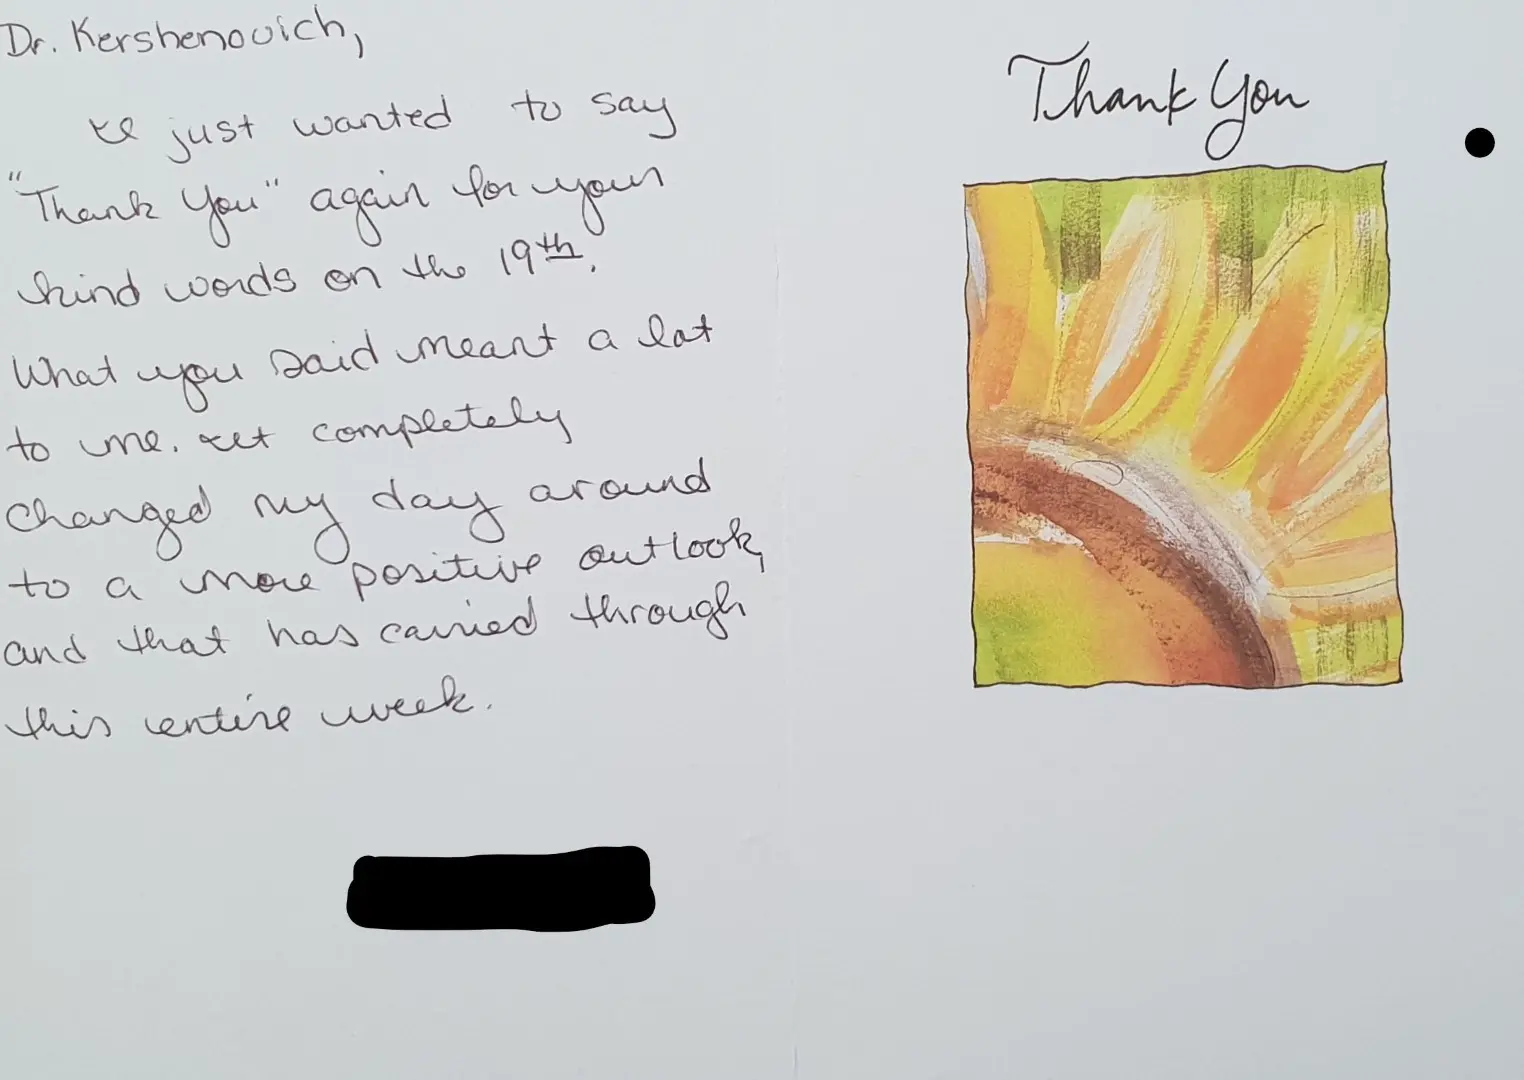 Dr. Kershenovich,
I just wanted to say
"Thank You" again for your
kind words on the 19th.
What you said meant a lot
to me. It completely
changed my day around
to a more positive outlook,
and that has carried through
this entire week.
Thank You